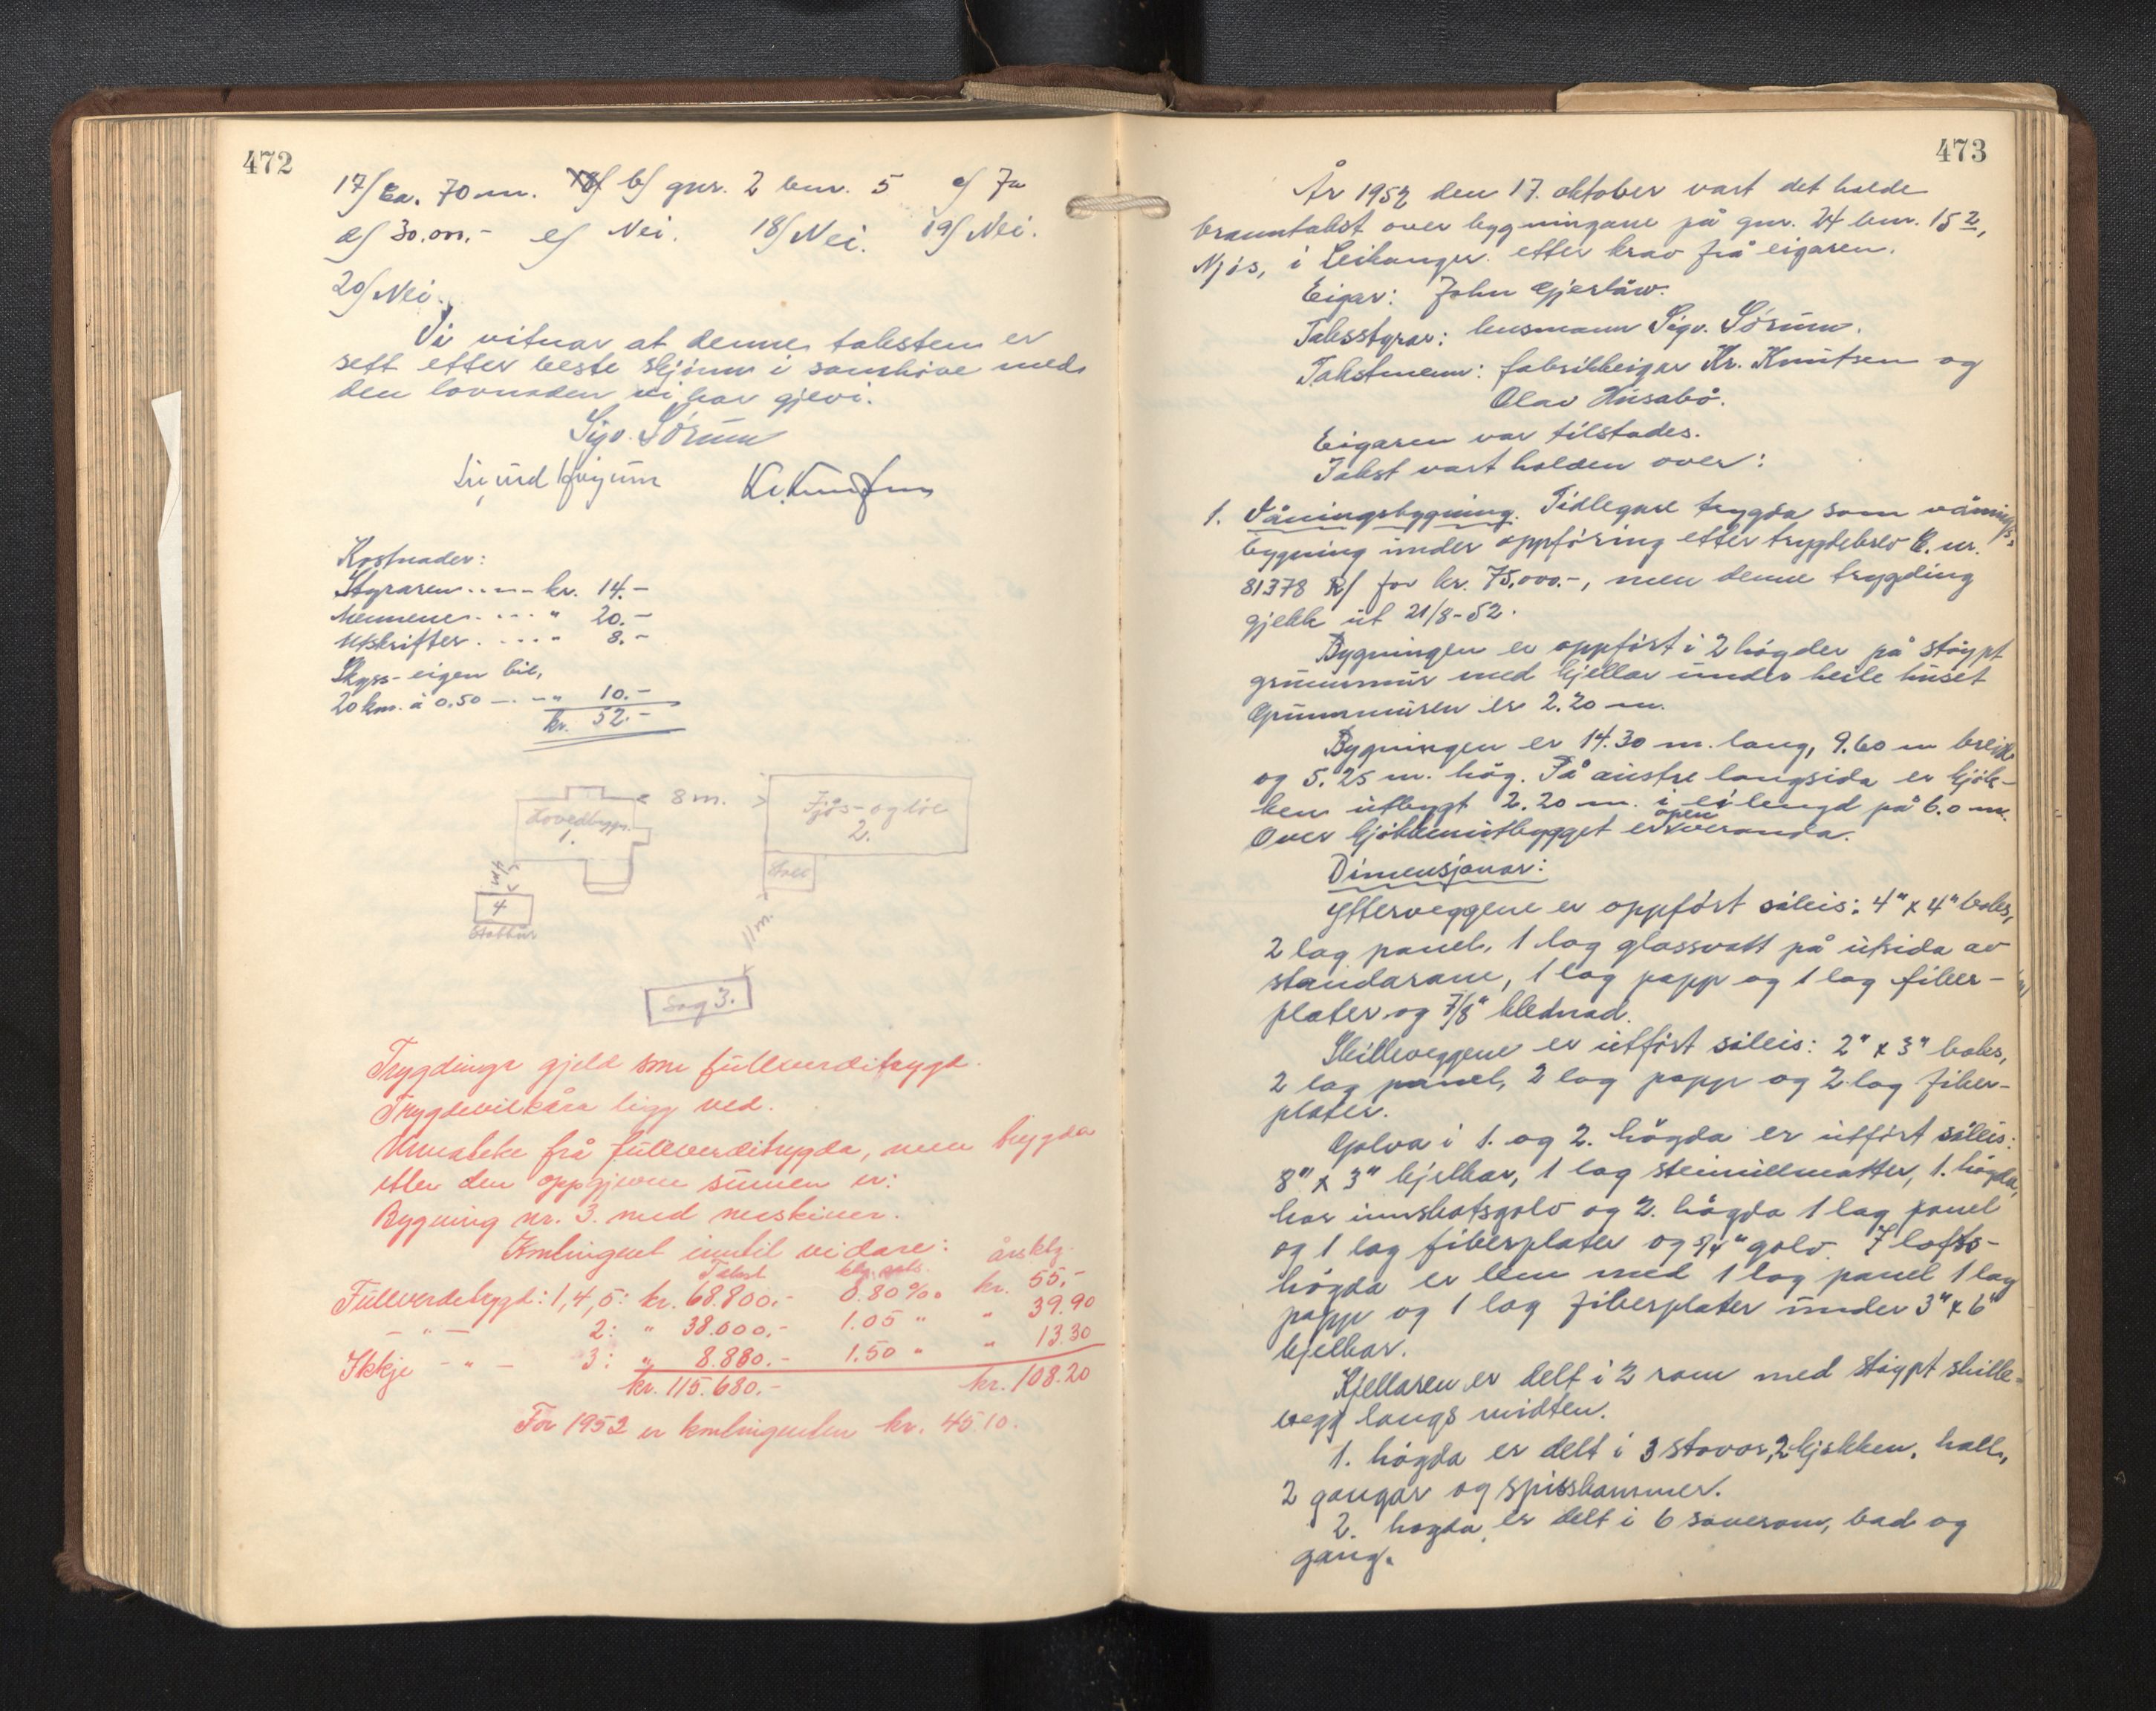 472
17/ Ca. 70 m. b/ gnr. 2 bnr. 5 c/ Ja
d/ 30.000,- e/ Nei. 18/ Nei. 19/ Nei.
20/ Nei.
Vi vitnar at denne taksten er
sett etter beste skjønn i samhøve med
den lovnaden vi har gjevi.
Sigv. Sórum
Kr. Knutsen
Kostnader:
Styraren .... kr. 14.-
Mennene .... " 20.-
Utskrifter .... " 8.-
Skyss- eigen bil,
20 km. à 0,50 -.- " 10.-
kr. 52.-
8 m.
Hovedbygn.
1.
Fjös- og löe
2.
Stall
4 m
4
Stabbur
11 m.
Sag 3.
Trygdinga gjeld som fullverditrygd.
Trygdevilkåra ligg ved.
Unnateke frå fullverditrygda, men trygda
etter den oppgjevne summen er:
Bygning nr. 3. med maskiner.
Kontingent inntil vidare: årsktg.
Takst ktg. sats.
Fullverditrygd: 1, 4, 5: kr. 68.800.- 0.80 ‰ kr. 55,-
- " - 2: " 38.000.- 1.05 " " 39.90
Ikkje - " - 3: " 8.880.- 1.50 " " 13.30
kr. 115.680.- kr. 108.20
For 1952 er kontingenten kr. 45.10.
473
År 1952 den 17. oktober vart det halde
branntakst over bygningane på gnr. 24 bnr. 15 2,
Njós, i Leikanger. etter krav frå eigaren.
Eigar: John Gjerlöw.
Takstyrar: lensmann Sigv. Sórum.
Takstmenn: fabrikkeigar Kr. Knutsen og
Olav Husabö.
Eigaren var tilstades.
Takst vart halden over:
1. Våningsbygning. Tidlegare trygda som vånings-
bygning under oppfóring etter trygdebrev B. nr.
81378 R/ for kr. 75.000.-, men denne trygding
gjekk ut 21/8-52.
Bygningen er oppfört i 2 högder på stöypt
grunnmur med kjellar under heile huset
Grunnmuren er 2.20 m.
Bygningen er 14.30 m. lang, 9.60 m breidd
og 5.25 m. hóg. På austre langsida er kjök-
ken utbygt 2.20 m. i ei lengd på 6.0 m.
Over kjökkenutbygget er open veranda.
Dimensjonar:
Ytterveggene er oppfört såleis: 4" x 4" boks,
2 lag panel, 1 lag glassvatt på utsida av
standarane, 1 lag papp og 1 lag fiber-
plater og 7/8" klednad.
Skilleveggene er utfört såleis: 2" x 3" boks,
2 lag panel, 2 lag papp og 2 lag fiber-
plater.
Golva i 1. og 2. högda er utfört såleis:
8" x 3" bjelkar, 1 lag steinullmatter, 1. högda,
har innskotsgolv og 2. högda 1 lag panel
og 1 lag fiberplater og 5/4" golv. I lofts-
högda er lem med 1 lag panel 1 lag
papp og 1 lag fiberplater under 3" x 6"
bjelkar.
Kjellaren er delt i 2 rom med stöypt skille-
vegg langs midten.
1. högda er delt i 3 stovor, 2 kjökken, hall,
2 gangar og spisskammer.
2. högda er delt i 6 soverom, bad og
gang.